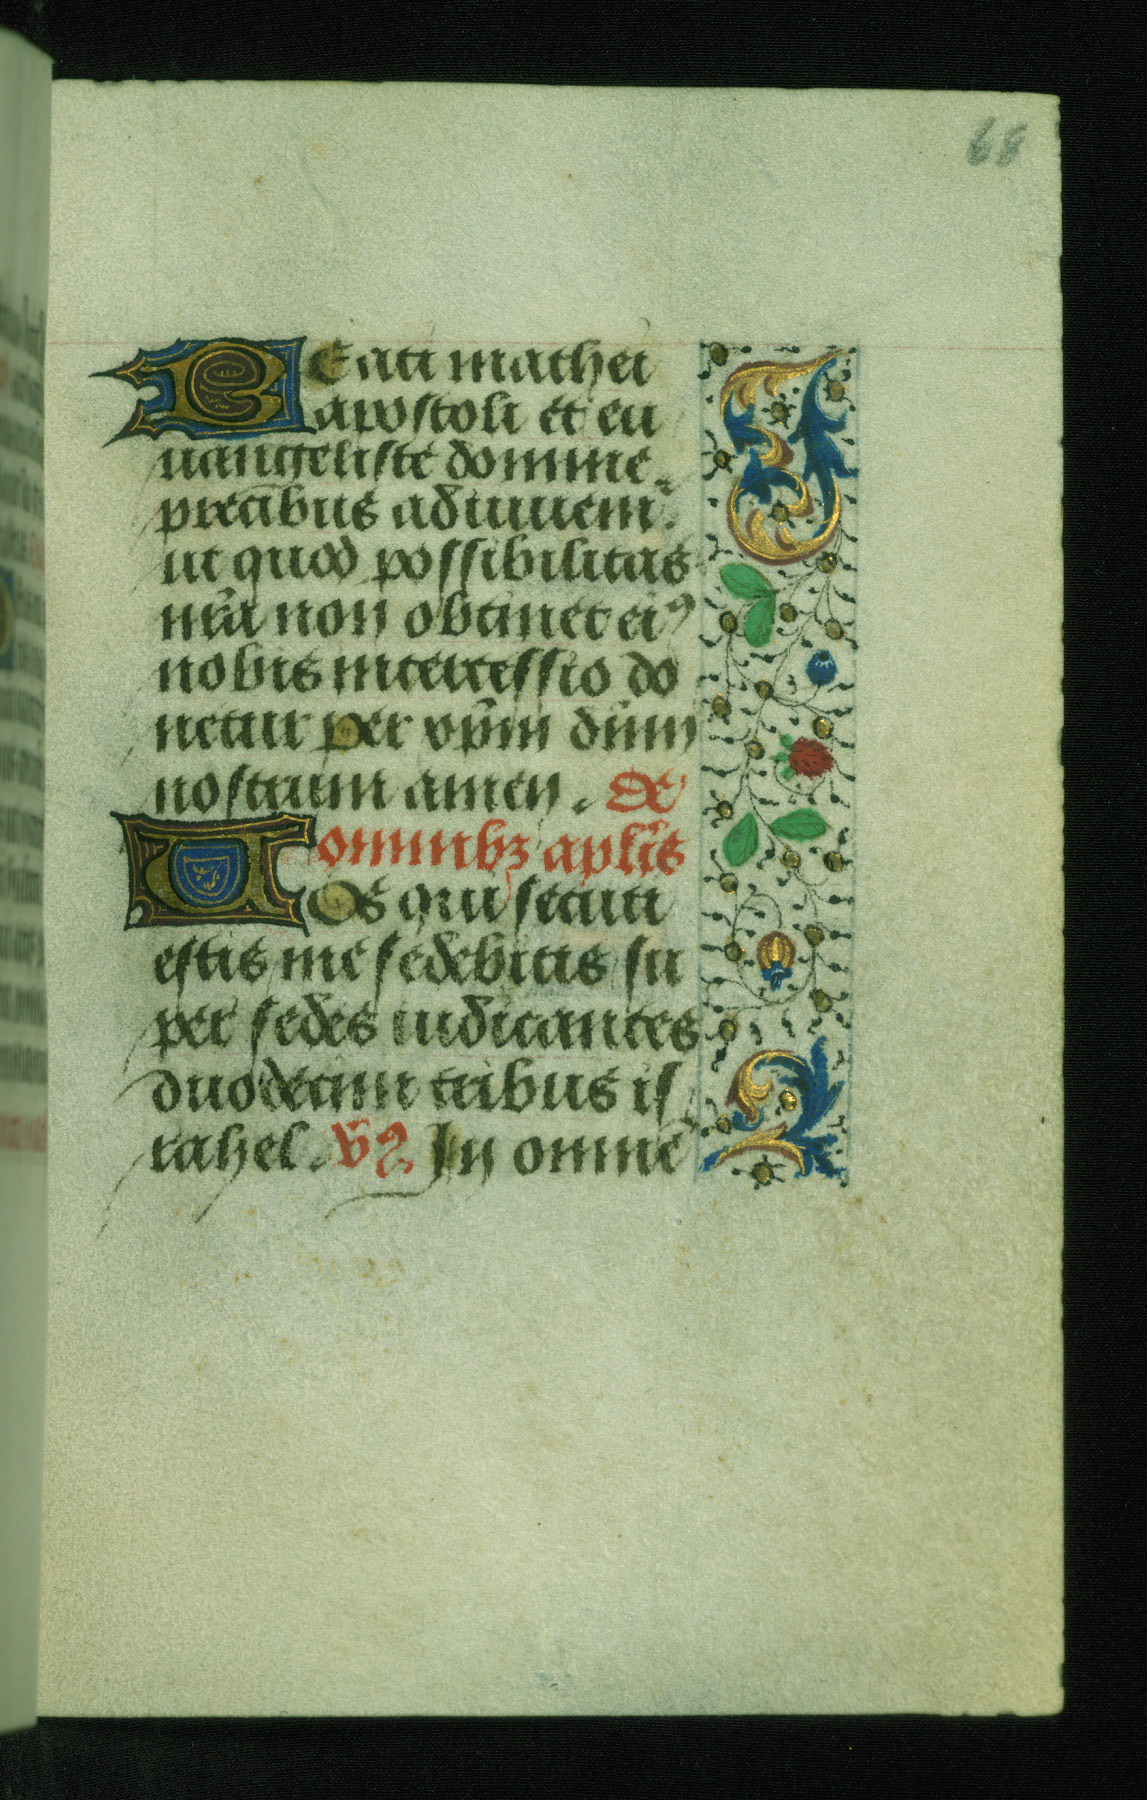 68
BEati mathei
apostoli et eu
uangeliste domine.
precibus adiuuem̄.
ut quod possibilitas
nr̄a non obtinet eiꝰ
nobis intercessio do
netur per xp̄m dn̄m
nostrum amen. De
omnibꝫ apl̄is
VOs qui secuti
estis me sedebitis su
per sedes iudicantes
duodecim tribus is
rahel. V̄s. In omnē